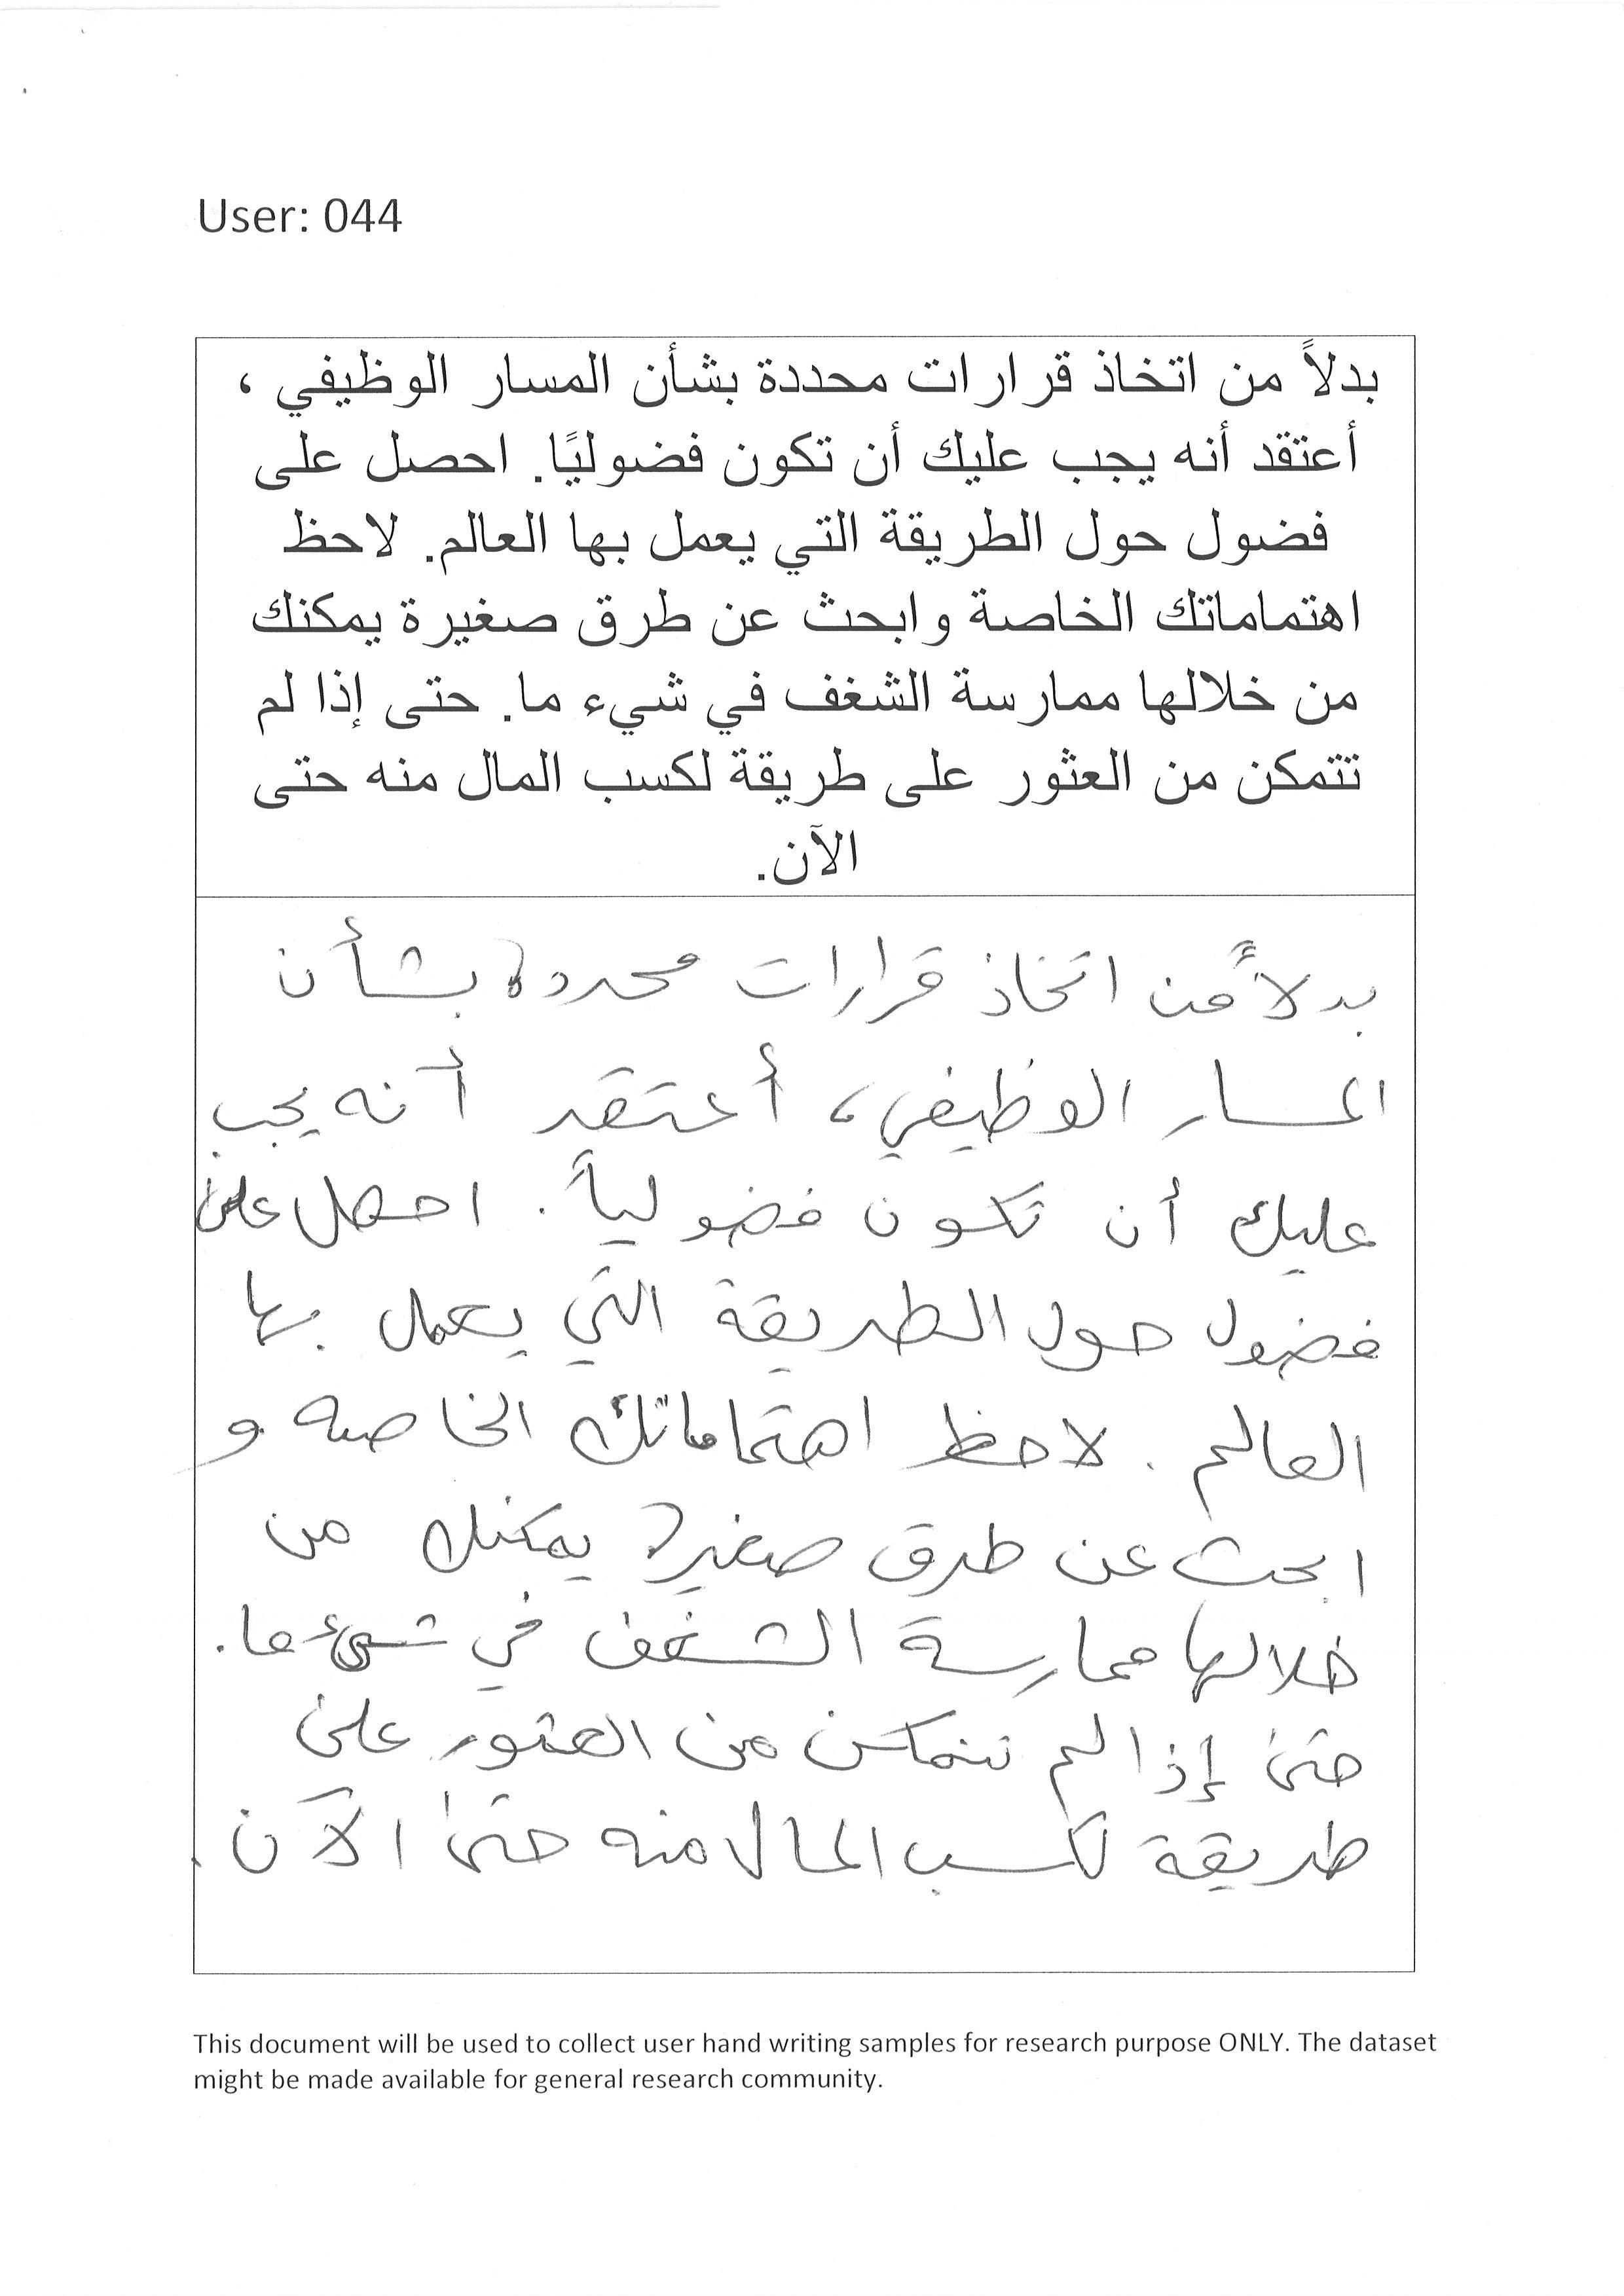 User: 044
بدلاً من اتخاذ قرارات محددة بشأن المسار الوظيفي ،
أعتقد أنه يجب عليك أن تكون فضوليًا. احصل على
فضول حول الطريقة التي يعمل بها العالم. لاحظ
اهتماماتك الخاصة وابحث عن طرق صغيرة يمكنك
من خلالها ممارسة الشغف في شيء ما. حتى إذا لم
تتمكن من العثور على طريقة لكسب المال منه حتى
الآن.
بدلاً من اتخاذ قرارات محددة بشأن
المسار الوظيفي، أعتقد أنه يجب
عليك أن تكون فضولياً. احصل على
فضول حول الطريقة التي يعمل بها
العالم. لاحظ اهتماماتك الخاصه و
ابحث عن طرق صغيرة يمكنك من
خلالها ممارسة الشغف في شيء ما.
حتى إذا لم تتمكن من العثور على
طريقة لكسب المال منه حتى الآن.
This document will be used to collect user hand writing samples for research purpose ONLY. The dataset
might be made available for general research community.